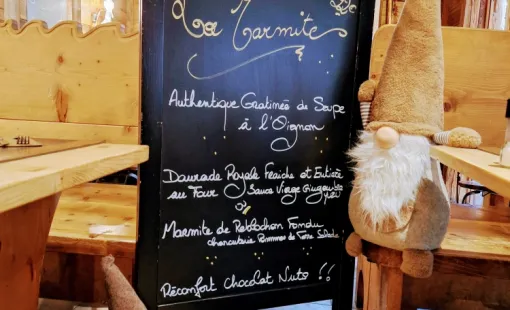 La Marmite
Authentique Gratinée de Soupe
à l'Oignon
Daurade Royale Fraîche et Entière
au Four Sauce Vierge
Marmite de Reblochon Fondu
charcuterie Pommes de Terre Salade
Réconfort Chocolat Nuts !!